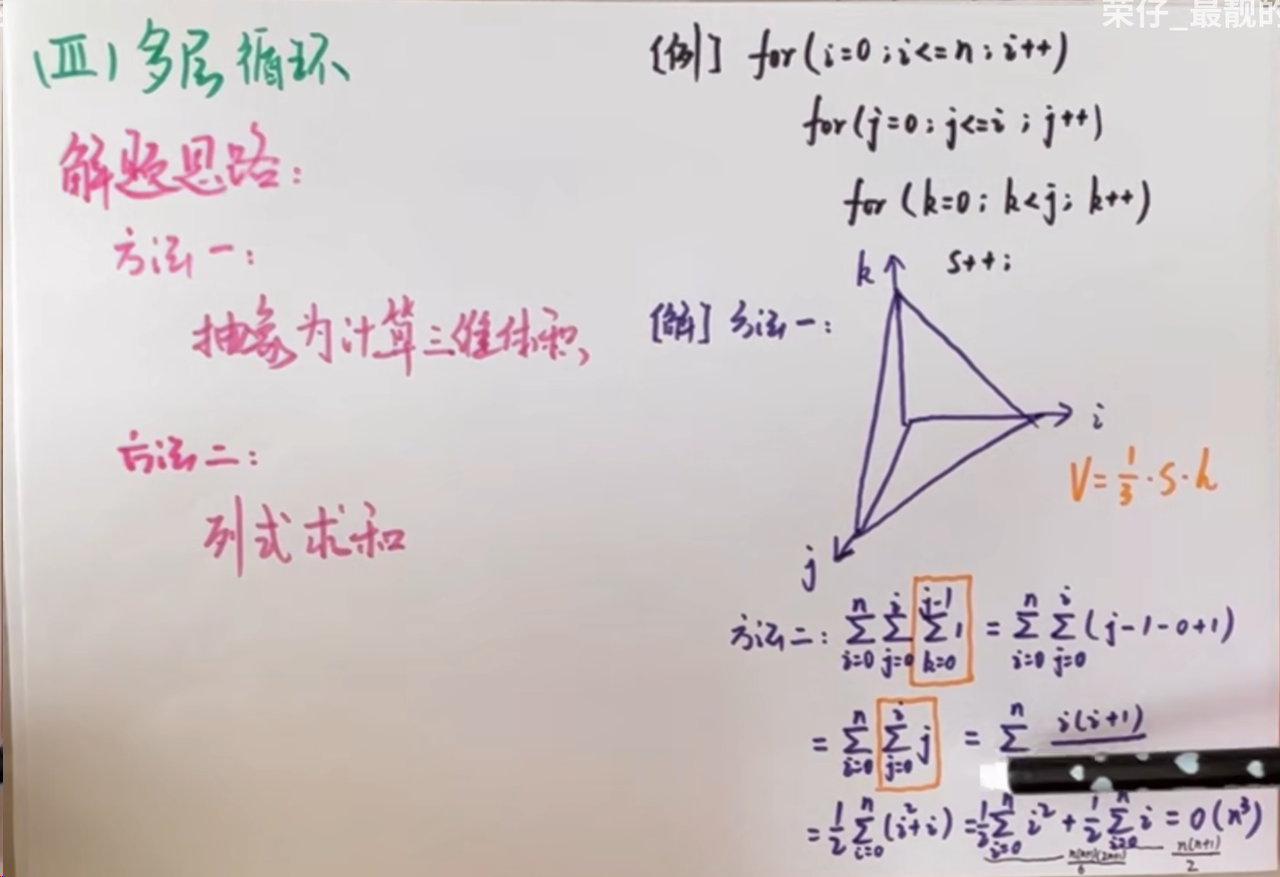 荣仔_最靓的
(Ⅲ) 多层循环
解题思路:
方法一:
抽象为计算三维体积
方法二:
列式求和
[例] for(i=0;i<=n;i++)
for(j=0;j<=i;j++)
for(k=0;k<j;k++)
s++;
[解] 方法一:
k
i
j
V=1/3·S·h
方法二: ∑_{i=0}^{n} ∑_{j=0}^{i} ∑_{k=0}^{j-1} 1 = ∑_{i=0}^{n} ∑_{j=0}^{i} (j-1-0+1)
= ∑_{i=0}^{n} ∑_{j=0}^{i} j = ∑^{n} i(i+1)
= 1/2 ∑_{i=0}^{n} (i²+i) = 1/2 ∑_{i=0}^{n} i² + 1/2 ∑_{i=0}^{n} i = O(n³)
n(n+1)(2n+1)/6 n(n+1)/2